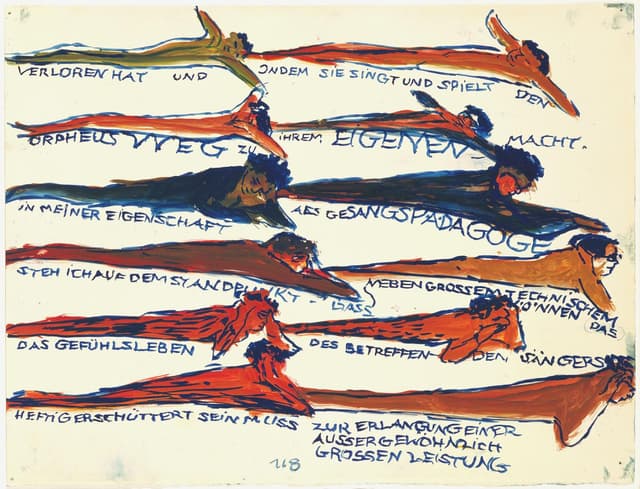 VERLOREN HAT UND INDEM SIE SINGT UND SPIELT DEN
ORPHEUS WEG ZU IHREM EIGENEN MACHT.
IN MEINER EIGENSCHAFT ALS GESANGSPÄDAGOGE
STEH ICH AUF DEM STANDPUNKT - DASS NEBEN GROSSEM TECHNISCHEM
KÖNNEN DAS
DAS GEFÜHLSLEBEN DES BETREFFENDEN SÄNGERS
HEFTIG ERSCHÜTTERT SEIN MUSS ZUR ERLANGUNG EINER
AUSSERGEWÖHNLICH
GROSSEN LEISTUNG